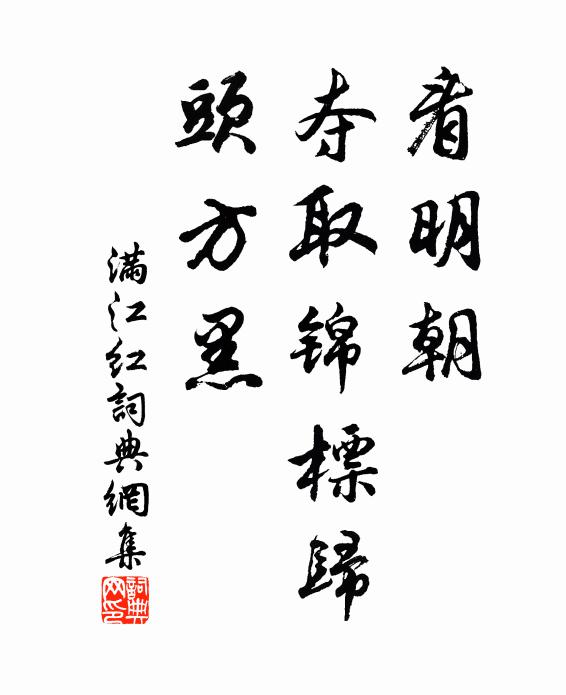 看明朝
夺取锦標歸
頭方黑
满江红詞典網集
詞典网印